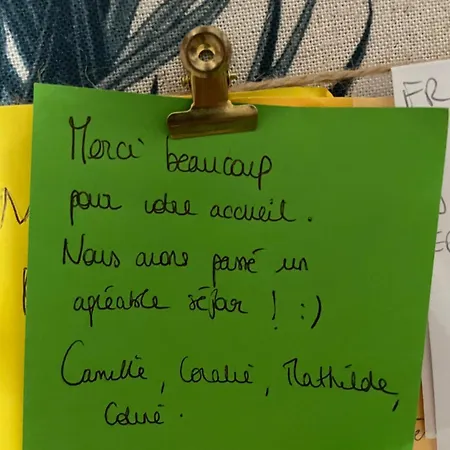 Merci beaucoup
pour votre accueil.
Nous avons passé un
agréable séjour ! :)
Camille, Coralie, Mathilde,
FR